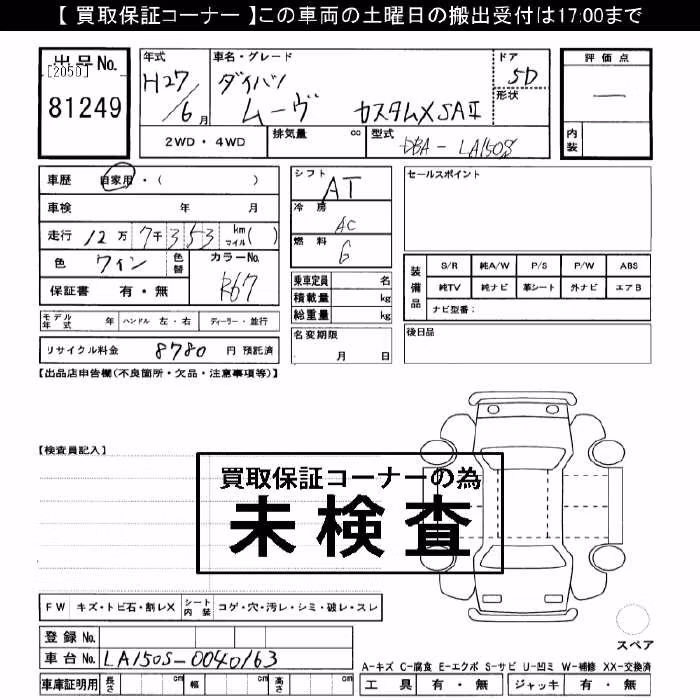 【 買取保証コーナー 】この車両の土曜日の搬出受付は17:00まで
出品No. [2050]
81249
年式 H27/6月
車名・グレード ダイハツ ムーヴ カスタムX SAⅡ
ドア 5D
形状
評価点 —
内装
2WD・4WD
排気量 cc
型式 DBA-LA150S
車歴 自家用・( )
車検 年 月
走行 12万7千353 km マイル( )
色 ワイン
色替
カラーNo. R67
保証書 有・無
モデル年式 年 ハンドル 左・右 ディーラー・並行
リサイクル料金 8780 円 預託済
シフト AT
冷房 AC
燃料 G
乗車定員 名
積載量 kg
総重量 kg
名変期限 月 日
セールスポイント
装備品
S/R 純A/W P/S P/W ABS
純TV 純ナビ 革シート 外ナビ エアB
ナビ型番:
後日品
【出品店申告欄(不良箇所・欠品・注意事項等)】
【検査員記入】
買取保証コーナーの為
未検査
FW キズ・トビ石・割レX シート内装 コゲ・穴・汚レ・シミ・破レ・スレ
スペア
登録No.
車台No. LA150S-0040163
A-キズ C-腐食 E-エクボ S-サビ U-凹ミ W-補修 XX-交換済
車庫証明用 長さ cm 幅 cm 高さ cm
工具 有・無 ジャッキ 有・無